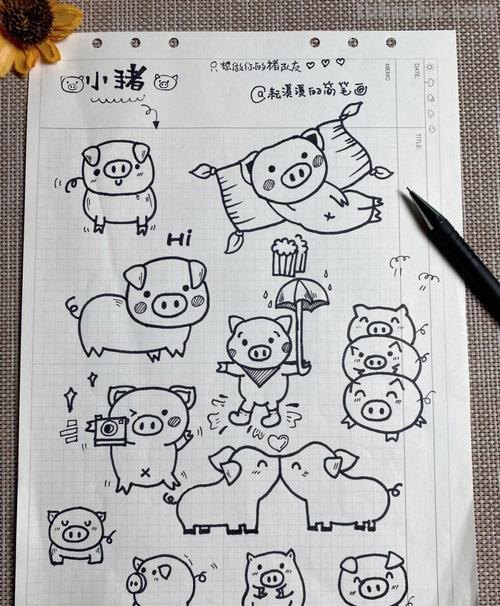 只想做你的猪队友♡♡♡
小猪
@耘溪溪的简笔画
DATE:
MEMO
TITLE:
Hi